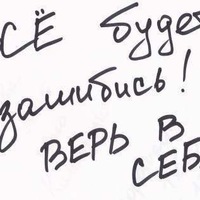 СЁ буде
зашибись!
ВЕРЬ В
СЕБ